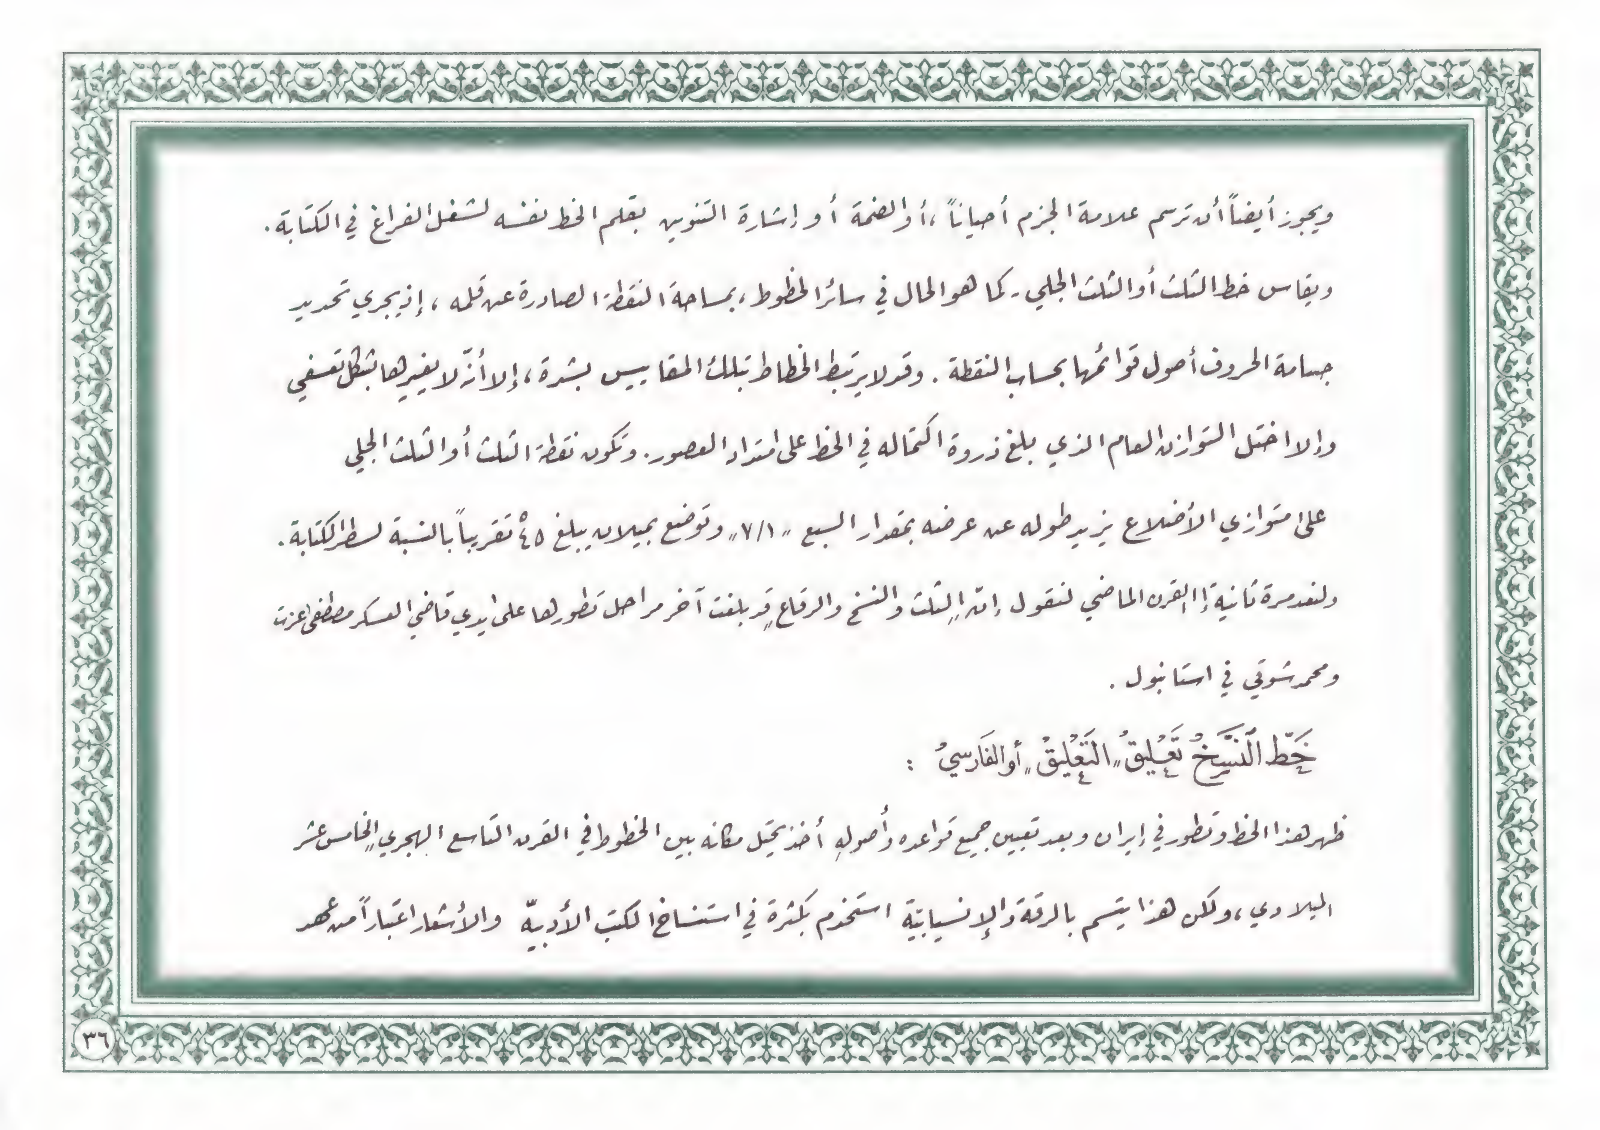 ويجوز أيضاً أن ترسم علامة الجزم أحياناً ، أو الضمة أو إشارة التنوين بقلم الخط نفسه لشغل الفراغ في الكتابة .
ويقاس خط الثلث أو الثلث الجلي - كما هو الحال في سائر الخطوط ، بمساحة النقطة الصادرة عن قلمه ، إذ يجري تحديد
جسامة الحروف أصول قوائمها بحساب النقطة . وقد لا يرتبط الخطاط بتلك المقاييس بشدة ، إلا أنّه لا يغيرها بشكل تعسفي
وإلا اختل التوازن العام الذي بلغ ذروة اكتماله في الخط على امتداد العصور . وتكون نقطة الثلث أو الثلث الجلي
على متوازي الأضلاع يزيد طوله عن عرضه بمقدار السبع "٧/١" وتوضع بميلان يبلغ ٤٥° تقريباً بالنسبة لسطر الكتابة .
ولنعد مرة ثانية إلى القرن الماضي لنقول إنّ الثلث والنسخ والرقاع قد بلغت آخر مراحل تطورها على يدي قاضي العسكر مصطفى عزت
ومحمد شوقي في استانبول .
خَطّ النَّسْخُ تَعْلِيقُ "التَّعْلِيقُ" أو الفَارسيُ :
ظهر هذا الخط وتطور في إيران وبعد تعيين جميع قواعده وأصوله أخذ يحتل مكانه بين الخطوط في القرن التاسع الهجري الخامس عشر
الميلادي ، ولكن هذا يتسم بالرقة والإنسيابيّة استخدم بكثرة في استنساخ الكتب الأدبيّة والأشعار اعتباراً من عهد
٣٦